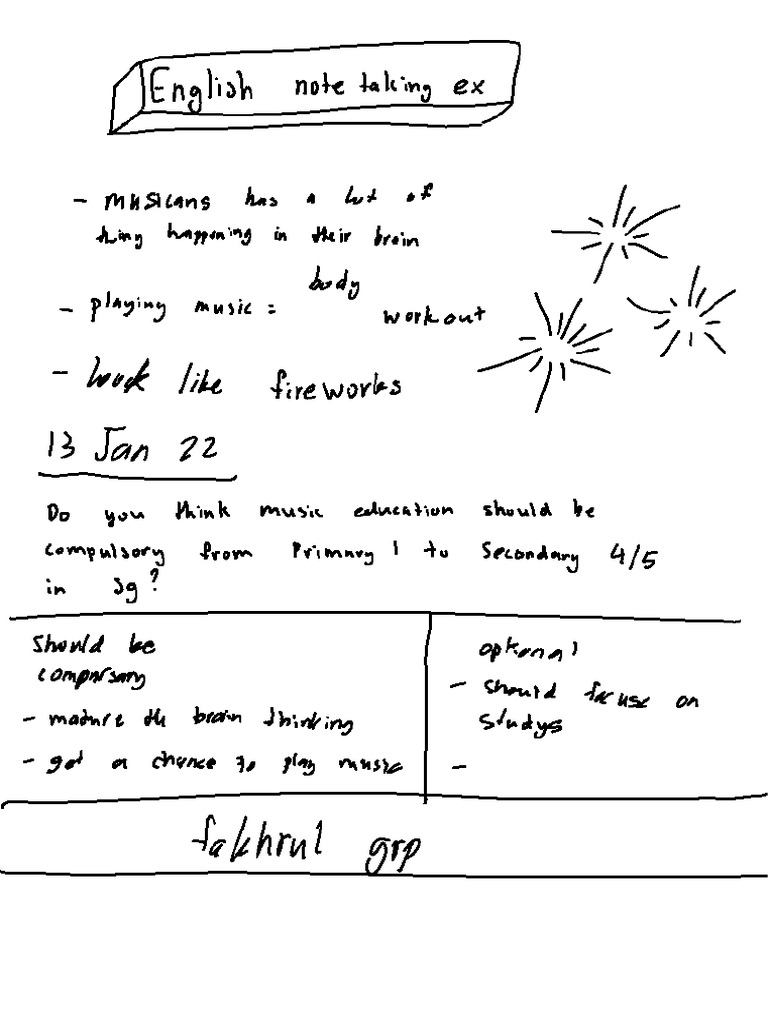 English note taking ex
- musicans has a lot of
thing happening in their brain
- playing music = body workout
- look like fireworks
13 Jan 22
Do you think music education should be
compulsory from Primary 1 to Secondary 4/5
in sg?
Should be
compulsary
- mature the brain thinking
- get a chance to play music
optional
- should focuse on
studys
-
fakhrul grp